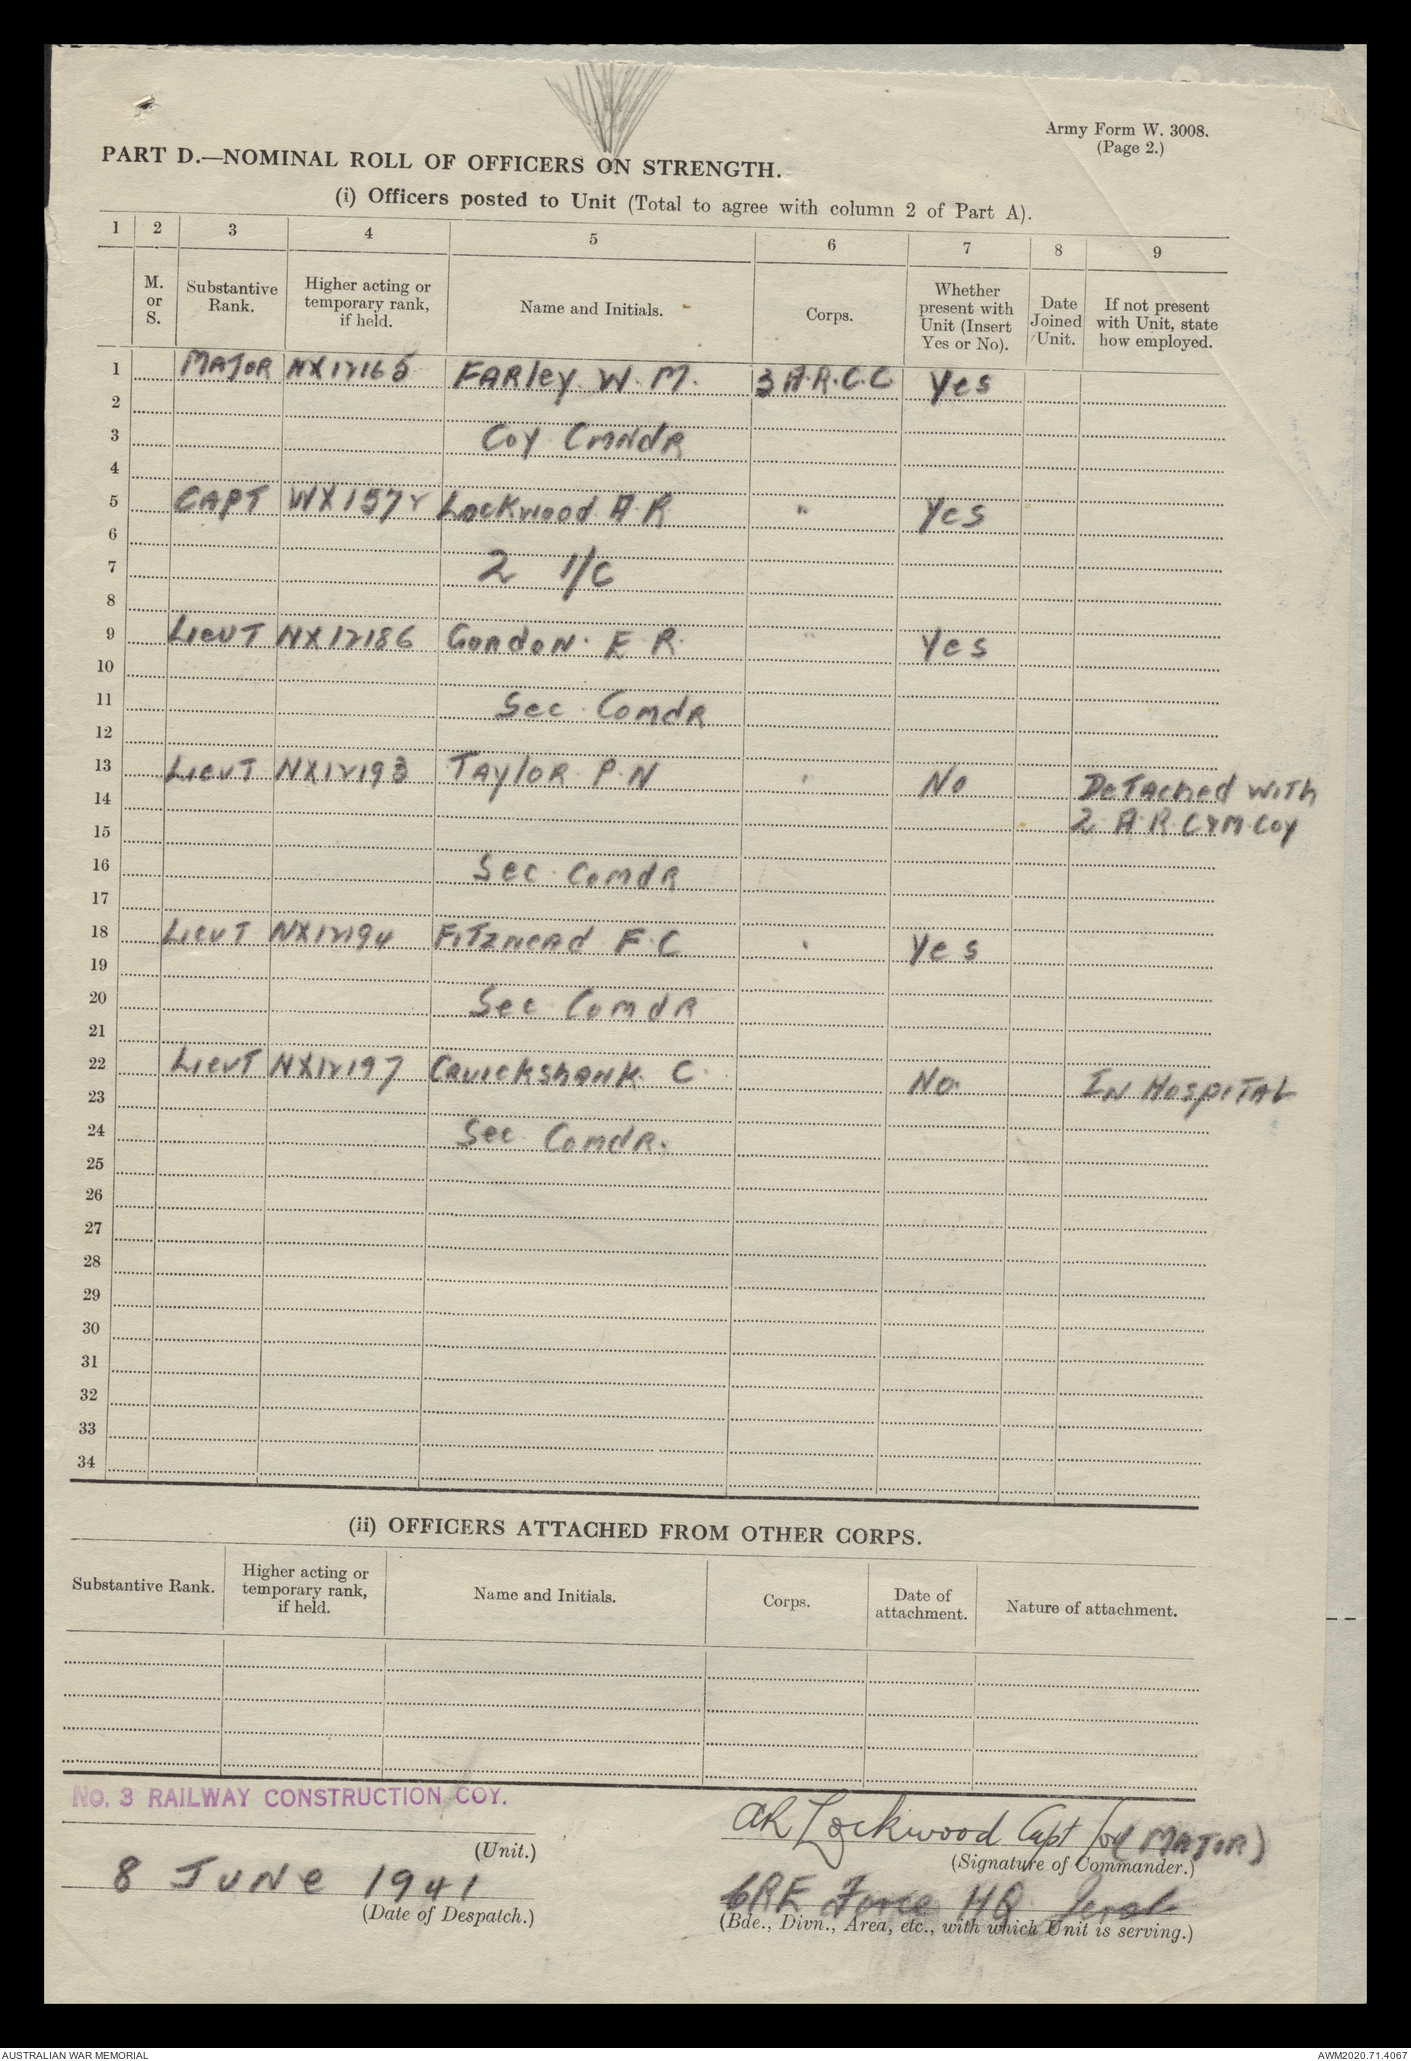 Army Form W. 3008.
(Page 2.)
PART D.—NOMINAL ROLL OF OFFICERS ON STRENGTH.
(i) Officers posted to Unit (Total to agree with column 2 of Part A).
1 2 3 4 5 6 7 8 9
M. or S. Substantive Rank. Higher acting or temporary rank, if held. Name and Initials. Corps. Whether present with Unit (Insert Yes or No). Date Joined Unit. If not present with Unit, state how employed.
1 MAJOR NX12165 FARley W. M. 3 A.R.C.C Yes
2
3 Coy CMNdR
4
5 CAPT WX1572 Lockwood A R " Yes
6
7 2 I/C
8
9 LieuT NX12186 GORdoN. E R. " Yes
10
11 Sec. ComdR
12
13 LieuT NX12193 TAylOR P.N " No DeTAched wiTh
14 2 A.R.C&M.Coy
15
16 Sec. ComdR
17
18 LieuT NX12194 FiTzheAd F.C " Yes
19
20 Sec ComdR
21
22 LieuT NX12197 CRuickshANK C. No. IN HospiTAL
23
24 Sec. ComdR.
25
26
27
28
29
30
31
32
33
34
(ii) OFFICERS ATTACHED FROM OTHER CORPS.
Substantive Rank. Higher acting or temporary rank, if held. Name and Initials. Corps. Date of attachment. Nature of attachment.
No. 3 RAILWAY CONSTRUCTION COY.
(Unit.)
8 JUNe 1941
(Date of Despatch.)
AR Lockwood Capt for (MAJOR)
(Signature of Commander.)
CRE Force HQ
(Bde., Divn., Area, etc., with which Unit is serving.)
AUSTRALIAN WAR MEMORIAL
AWM2020.71.4067